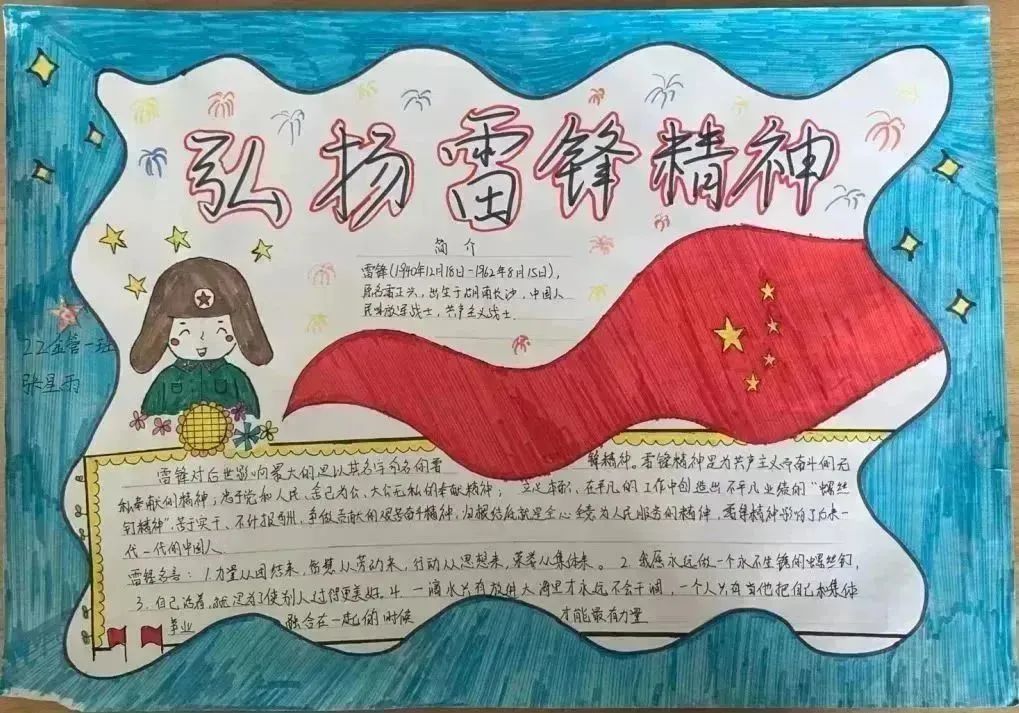 弘扬雷锋精神
简介
雷锋(1940年12月18日-1962年8月15日),
原名雷正兴,出生于湖南长沙,中国人
民解放军战士,共产主义战士.
22金管一班
张星雨
雷锋对后世影响最大的是以其名字命名的雷锋精神。雷锋精神是为共产主义而奋斗的无
私奉献的精神;忠于党和人民、舍己为公、大公无私的奉献精神;立足本职、在平凡的工作中创造出不平凡业绩的“螺丝
钉精神”;苦干实干、不计报酬、争做贡献的艰苦奋斗精神,归根结底就是全心全意为人民服务的精神,雷锋精神影响了后来一
代一代的中国人.
雷锋名言:1.力量从团结来,智慧从劳动来,行动从思想来,荣誉从集体来。2.我愿永远做一个永不生锈的螺丝钉,
3.自己活着,就是为了使别人过得更美好。4.一滴水只有放进大海里才永远不会干涸,一个人只有当他把自己和集体
事业融合在一起的时候才能最有力量